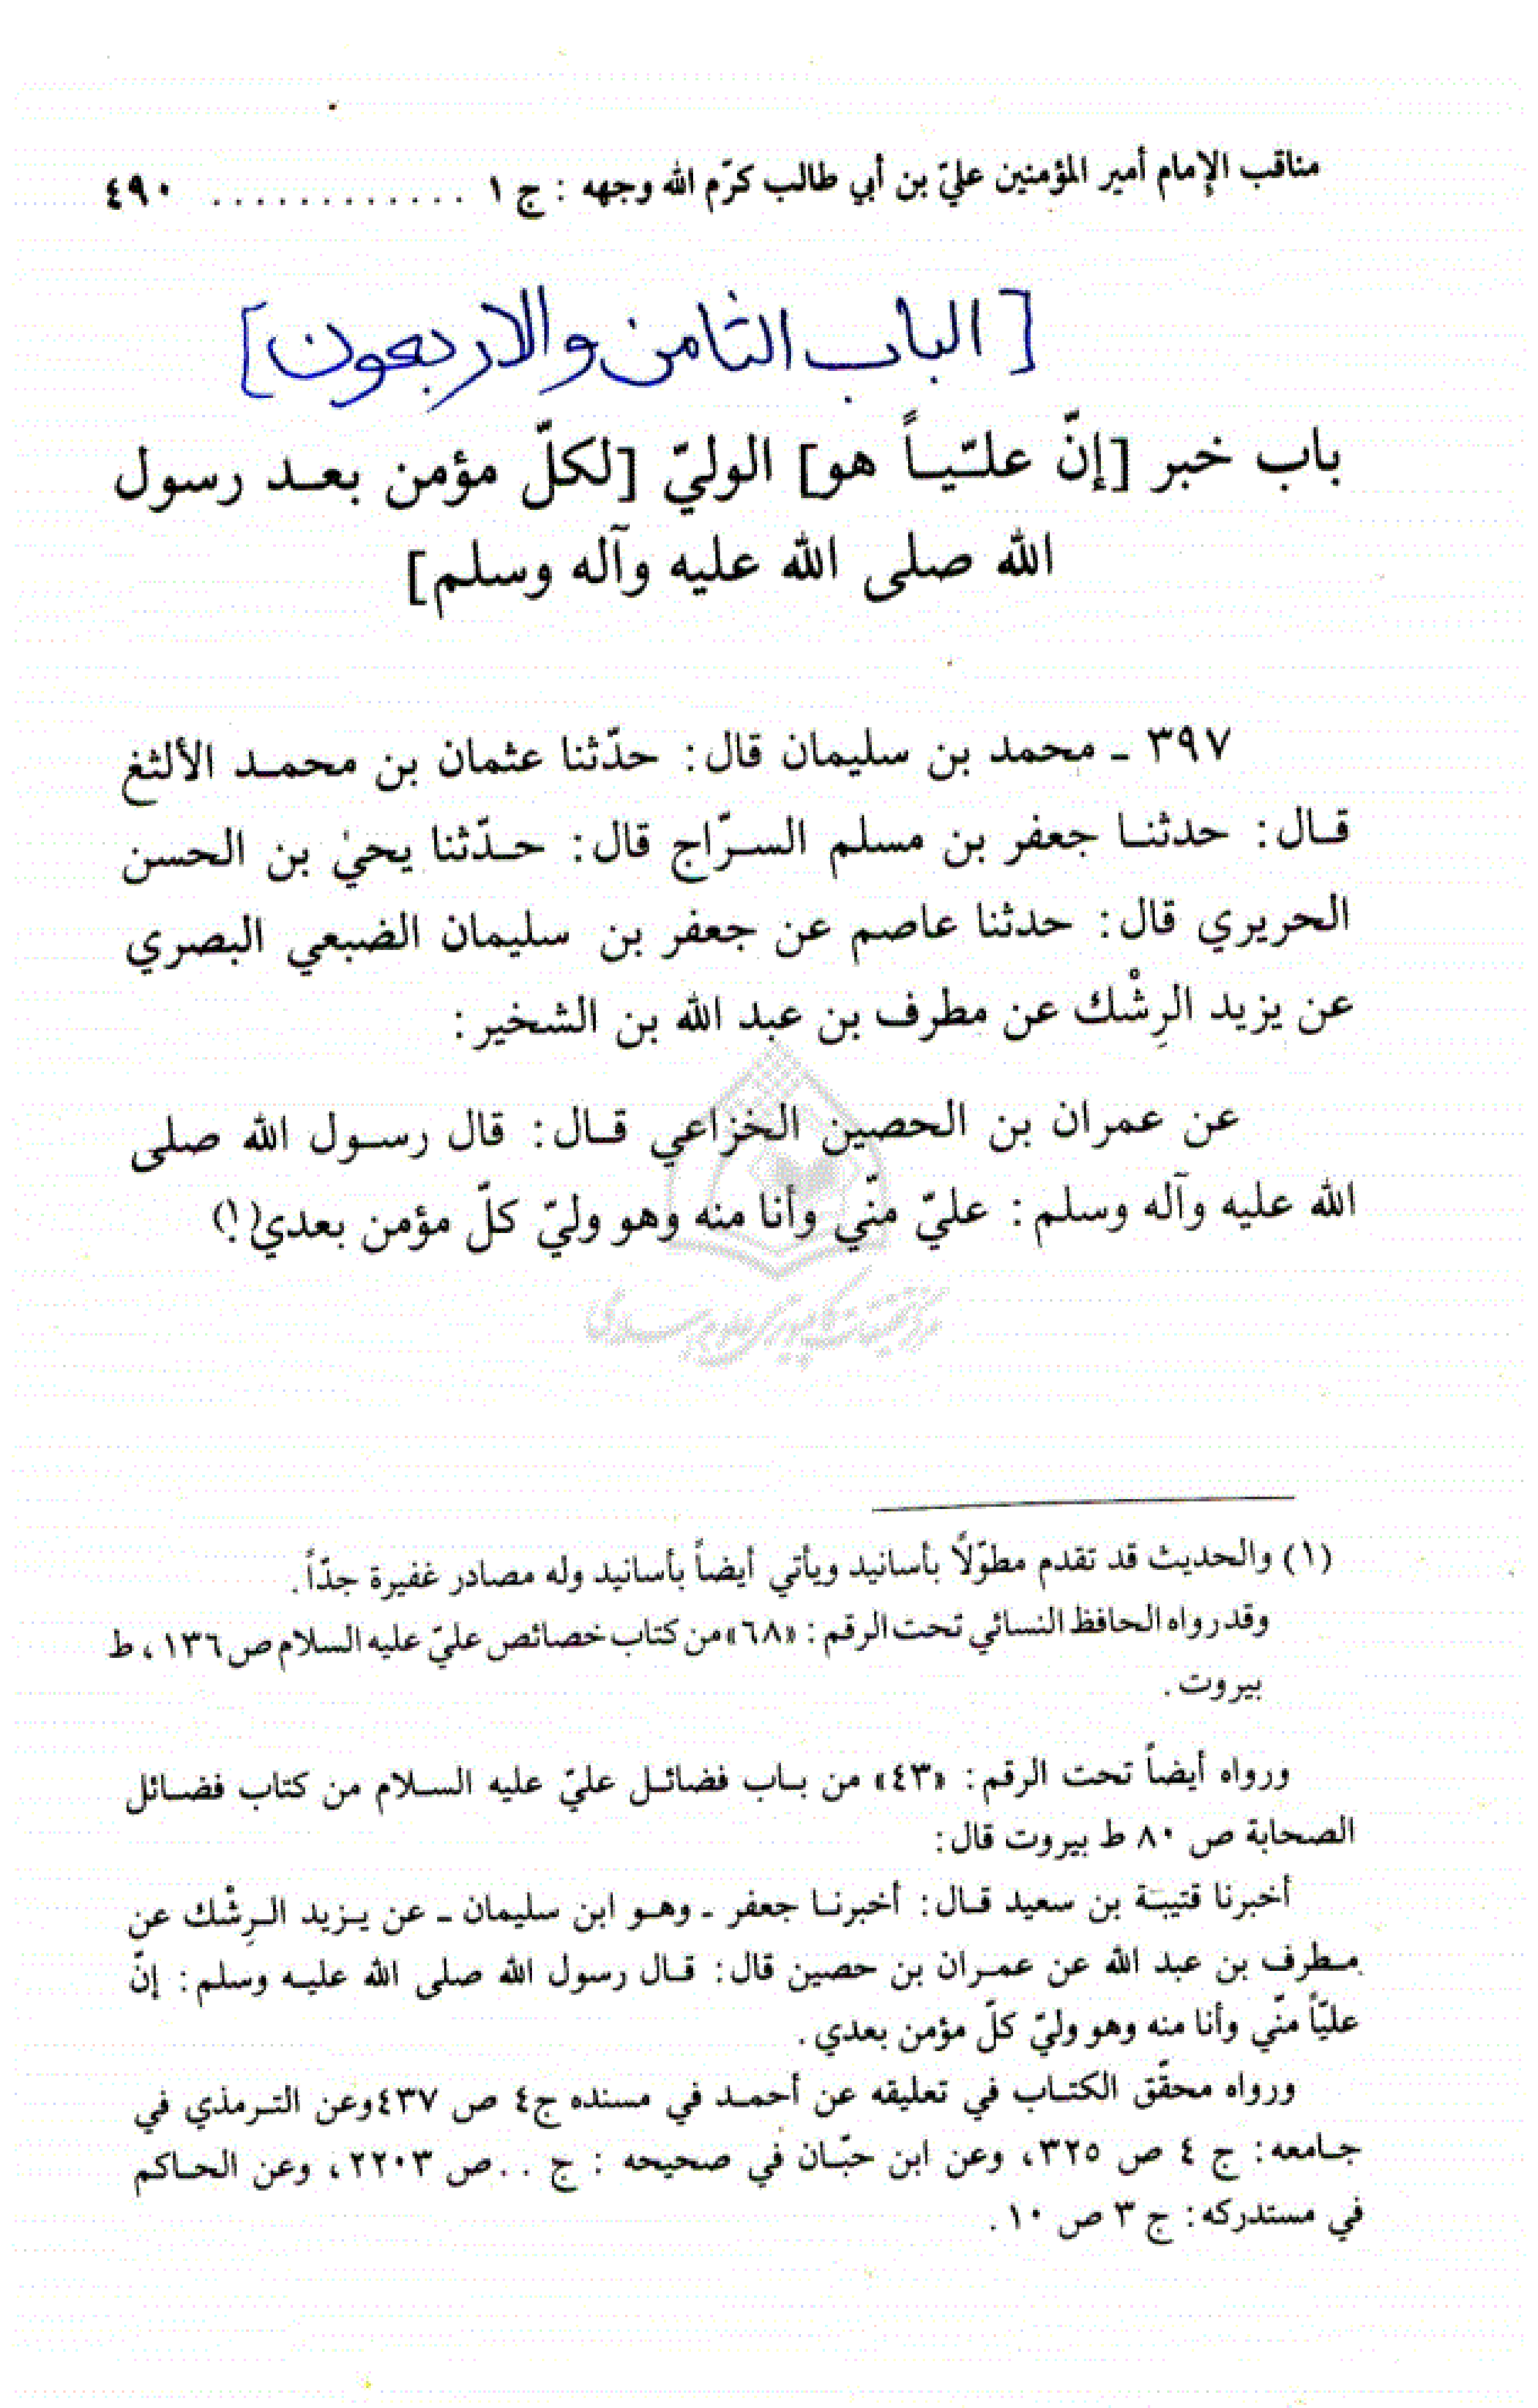 مناقب الإمام أمير المؤمنين عليّ بن أبي طالب كرّم الله وجهه : ج ١ ............ ٤٩٠
[الباب الثامن والاربعون]
باب خبر [إنّ عليّاً هو] الوليّ [لكلّ مؤمن بعد رسول
الله صلى الله عليه وآله وسلم]
٣٩٧ - محمد بن سليمان قال: حدّثنا عثمان بن محمد الألثغ
قال: حدثنا جعفر بن مسلم السرّاج قال: حدّثنا يحيٰ بن الحسن
الحريري قال: حدثنا عاصم عن جعفر بن سليمان الضبعي البصري
عن يزيد الرِشْك عن مطرف بن عبد الله بن الشخير:
عن عمران بن الحصين الخزاعي قال: قال رسول الله صلى
الله عليه وآله وسلم: عليّ منّي وأنا منه وهو وليّ كلّ مؤمن بعدي(١)
مركز تحقيقات كامپيوتری علوم اسلامی
(١) والحديث قد تقدم مطوّلاً بأسانيد ويأتي أيضاً بأسانيد وله مصادر غفيرة جدّاً.
وقد رواه الحافظ النسائي تحت الرقم: «٦٨» من كتاب خصائص عليّ عليه السلام ص ١٣٦، ط
بيروت.
ورواه أيضاً تحت الرقم: «٤٣» من باب فضائل عليّ عليه السلام من كتاب فضائل
الصحابة ص ٨٠ ط بيروت قال:
أخبرنا قتيبة بن سعيد قال: أخبرنا جعفر - وهو ابن سليمان - عن يزيد الرِشْك عن
مطرف بن عبد الله عن عمران بن حصين قال: قال رسول الله صلى الله عليه وسلم: إنّ
عليّاً منّي وأنا منه وهو وليّ كلّ مؤمن بعدي.
ورواه محقّق الكتاب في تعليقه عن أحمد في مسنده ج٤ ص ٤٣٧ وعن الترمذي في
جامعه: ج ٤ ص ٣٢٥، وعن ابن حبّان في صحيحه : ج .. ص ٢٢٠٣، وعن الحاكم
في مستدركه: ج ٣ ص ١٠.